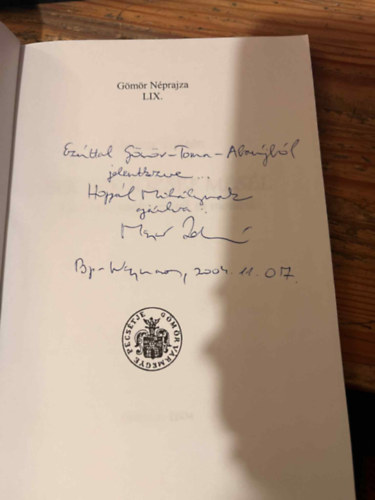 Gömör Néprajza
LIX.
Ezúttal Gömör-Torna-Abaújból
jelentkezve...
Hoppál Mihálynak
ajánlva:
Bp- 2004. 11. 07.
GÖMÖR VÁRMEGYE PECSÉTJE